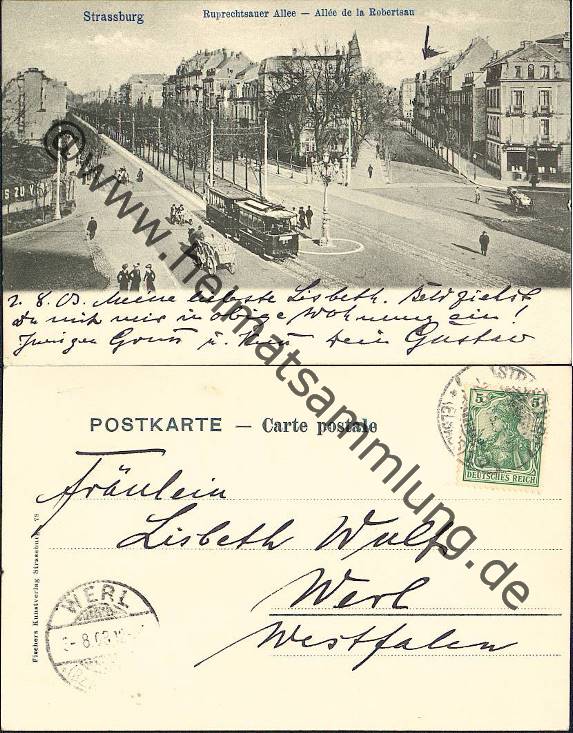 Strassburg
Ruprechtsauer Allee — Allée de la Robertsau
2. 8. 03. Meine liebste Lisbeth. Bald ziehst
Du mit mir in obige Wohnung ein!
Gruss u. Kuss Dein Gustav
POSTKARTE — Carte postale
5 5
DEUTSCHES REICH
Fräulein
Lisbeth Wulf
Werl
Westfalen
Fischers Kunstverlag Strassburg 78
WERL
3-8.03
@www.heimatsammlung.de